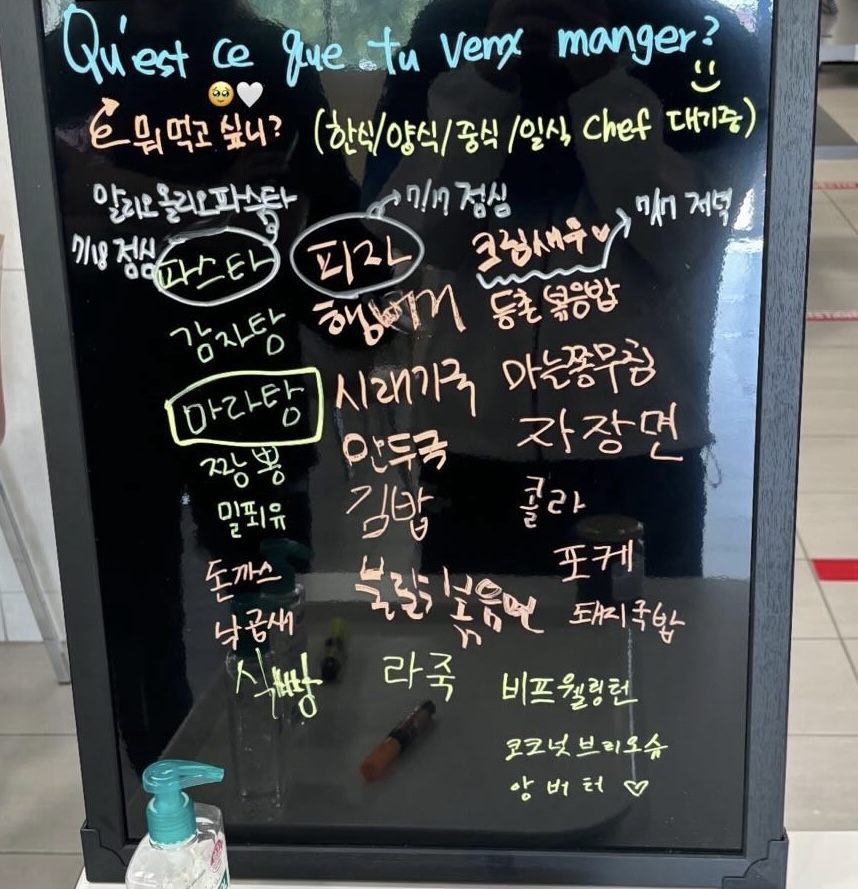 Qu'est ce que tu veux manger?
뭐 먹고 싶니? (한식/양식/중식/일식 Chef 대기중)
알리오올리오파스타
7/17 점심
7/17 저녁
7/18 점심
파스타
피자
크림새우
감자탕
햄버거
등촌볶음밥
마라탕
시래기국
마늘쫑무침
짬뽕
만두국
자장면
밀푀유
김밥
콜라
돈까스
불닭볶음면
포케
낙곱새
돼지국밥
식빵
라죽
비프웰링턴
코코넛브리오슈
앙버터